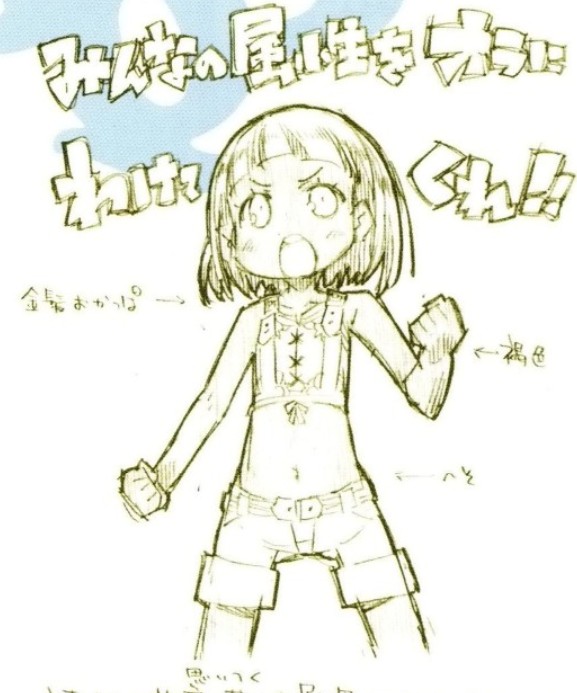 みんなの属性をオラに
わけてくれ!!
金髪おかっぱ
褐色
へそ
思いつく